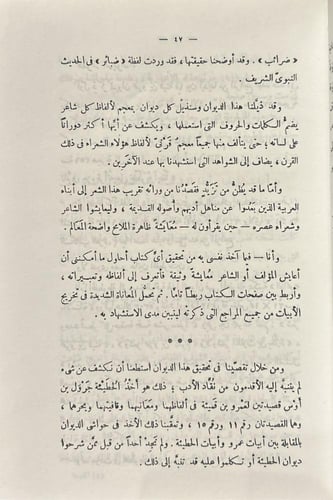 — ٤٧ —
« ضرائب » . وقد أوضحنا حقيقتها ، فقد وردت لفظة « ضبائر » فى الحديث
النبوىّ الشريف .
وقد ذيّلنا هذا الديوان وسنذيل كل ديوان بمعجم لألفاظ كل شاعر
يضمّ الكلمات والحروف التى استعملها ، ويكشف عن أيّها أكثر دورانًا
على لسانه ، حتى يتألف منها جميعًا معجم قرنىّ لألفاظ هؤلاء الشعراء فى ذلك
القرن ، يضاف إلى الشواهد التى استشهدنا بها عند الآخرين .
وأمّا ما قد يُظنّ من تزيّد قصدْنا من ورائه تقريب هذا الشعر إلى أبناء
العربية الذين بعدوا عن مناهل أدبهم وأصوله القديمة ، وليعايشوا الشاعر
وشعراء عصره — حين يقرأون له — مُعايشةً ظاهرة الملامح واضحة المعالم .
وأنا — فيما آخذ نفسى به من تحقيق أىّ كتاب أحاول ما أمكننى أن
أعايش المؤلف أو الشاعر مُعايشةً وثيقة فأتعرف إلى ألفاظه وتعبيراته ،
وأربط بين صفحات الكتاب ربطًا تامًّا . ثم تحمّل المعاناة الشديدة فى تخريج
الأبيات من جميع المراجع التى ذكرته ليتبين مدى الاستشهاد به .
* * *
ومن خلال تقصّينا فى تحقيق هذا الديوان استطعنا أن نكشف عن شىء
لم يتنبه إليه الأقدمون من نُقّاد الأدب ؛ ذلك هو أخذُ الحُطَيئة جَرْوَل بن
أوْس قصيدتين لعمرو بن قميئة فى ألفاظهما ومعانيهما وقافيتهما وبحرهما ،
وهما القصيدتان رقم ١١ ورقم ١٥ ، وتعقبنا ذلك الأخذ فى حواشى الديوان
بالمقابلة بين أبيات عمرو وأبيات الحطيئة . ولم نجد أحدا من قبل ممّن شرحوا
ديوان الحطيئة أو تكلموا عليه قد تنبّه إلى ذلك .